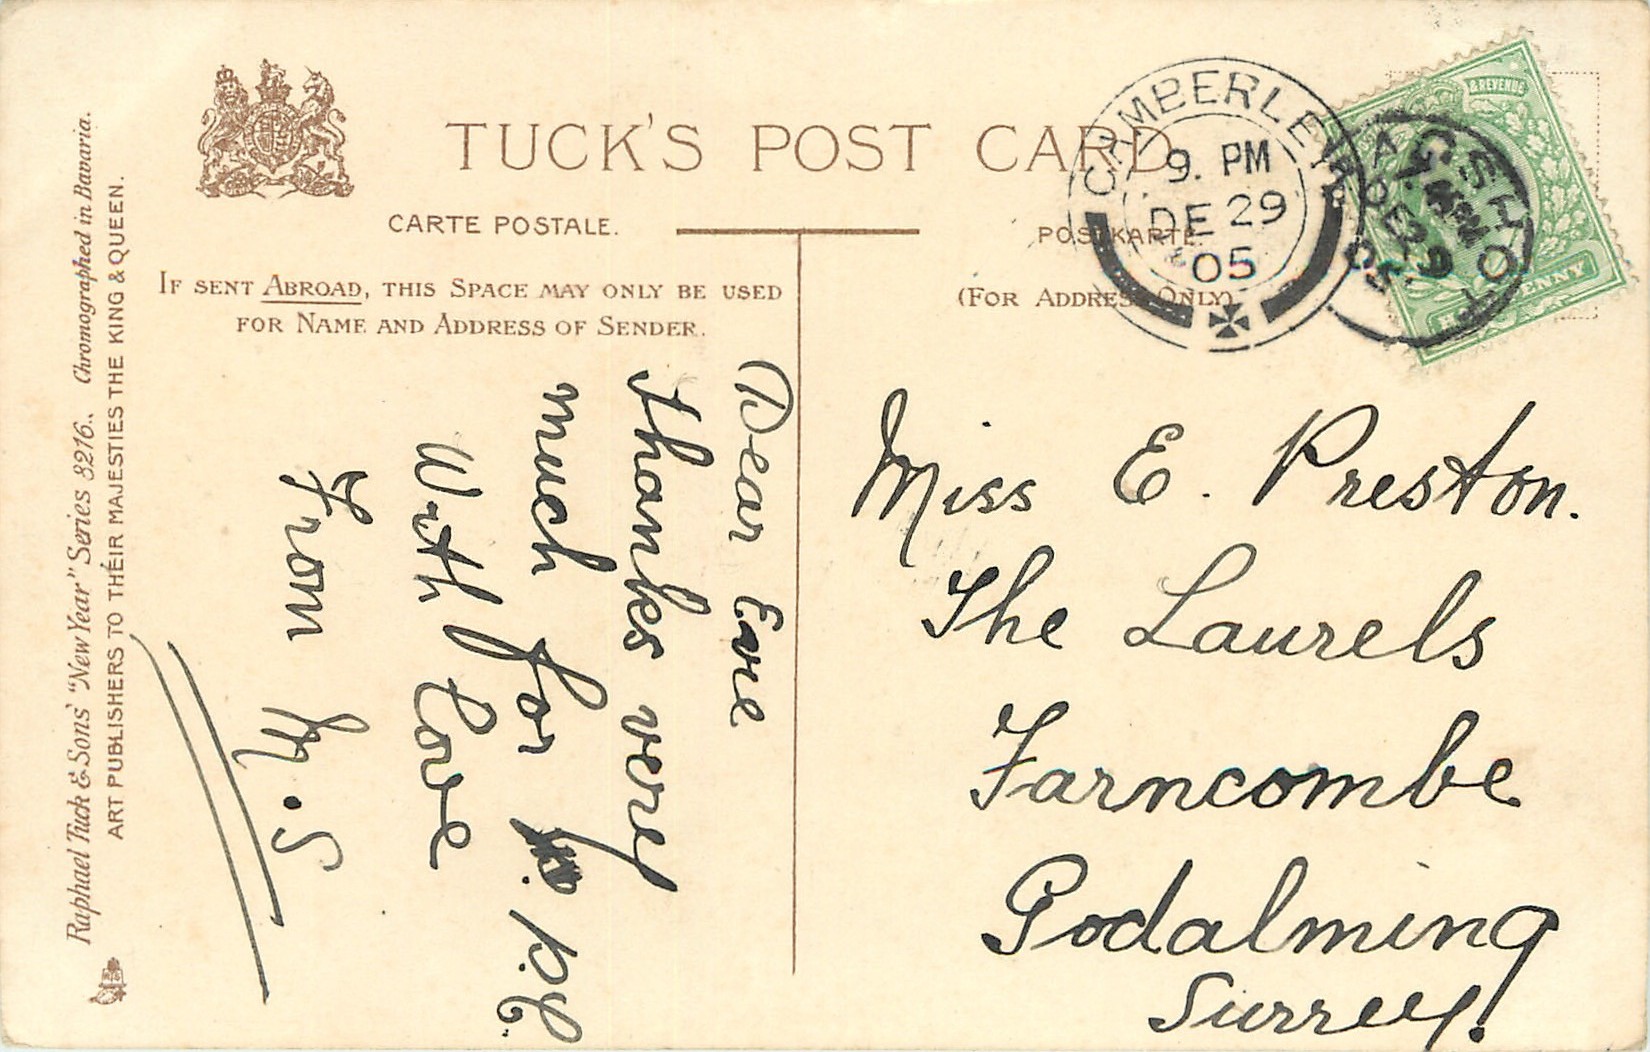 TUCK'S POST CARD
CARTE POSTALE.
POSTKARTE.
IF SENT ABROAD, THIS SPACE MAY ONLY BE USED
FOR NAME AND ADDRESS OF SENDER.
(FOR ADDRESS ONLY)
CAMBERLEY
9. PM
DE 29
05
DE 29
05
& REVENUE
Raphael Tuck & Sons' "New Year" Series 8216. Chromographed in Bavaria.
ART PUBLISHERS TO THEIR MAJESTIES THE KING & QUEEN.
Dear Evie
thanks very
much for p.p.c.
With love
From M.S
Miss E. Preston.
The Laurels
Farncombe
Godalming
Surrey.